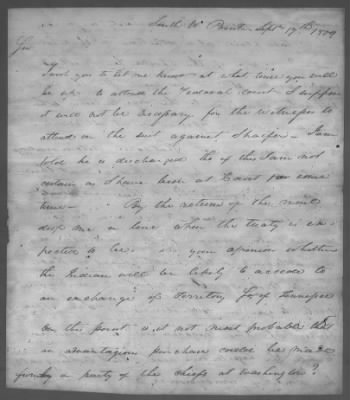 South W. Point Sept 17th 1809
Sir
I wish you to let me know at what time you will
be up to attend the Federal court I suppose
it will not be necessary for the witnesses to
attend in the suit against Sharper - I am
told he is discharged tho of this I am not
certain as I have been at for some
time - By the return of the mail
drop me a line when the treaty is ex-
pected to be in your opinion whether
the Indians will be likely to accede to
an exchange of Territory for of Tennessee
On this point is it not most probable that
an advantageous purchase could be made
by a party of the chiefs at Washington?